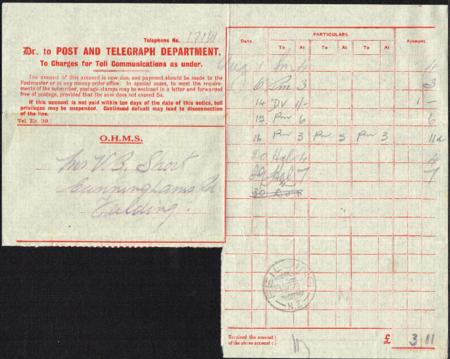 Telephone No. 1781M
Dr. to POST AND TELEGRAPH DEPARTMENT.
To Charges for Toll Communications as under.
The amount of this account is now due, and payment should be made to the
Postmaster or in any money-order office. In special cases, to meet the require-
ments of the subscriber, postage-stamps may be enclosed in a letter and forwarded
free of postage, provided that the sum does not exceed 5s.
If this account is not paid within ten days of the date of this notice, toll
privileges may be suspended. Continued default may lead to disconnection
of the line.
O.H.M.S.
Mrs V. B. Short
Cunninghams
Feilding.
Date. PARTICULARS. Amount.
To At To At To At
Aug 1 4
Pm 3 3
14 DV 1/- 1 -
15 Pm 6 6
16 Pm 3 Pm 5 Pm 3 11d
20 4 4
29 7 7
30
FEILDING
N.Z.
Received the amount
of the above account:
£ 3 11